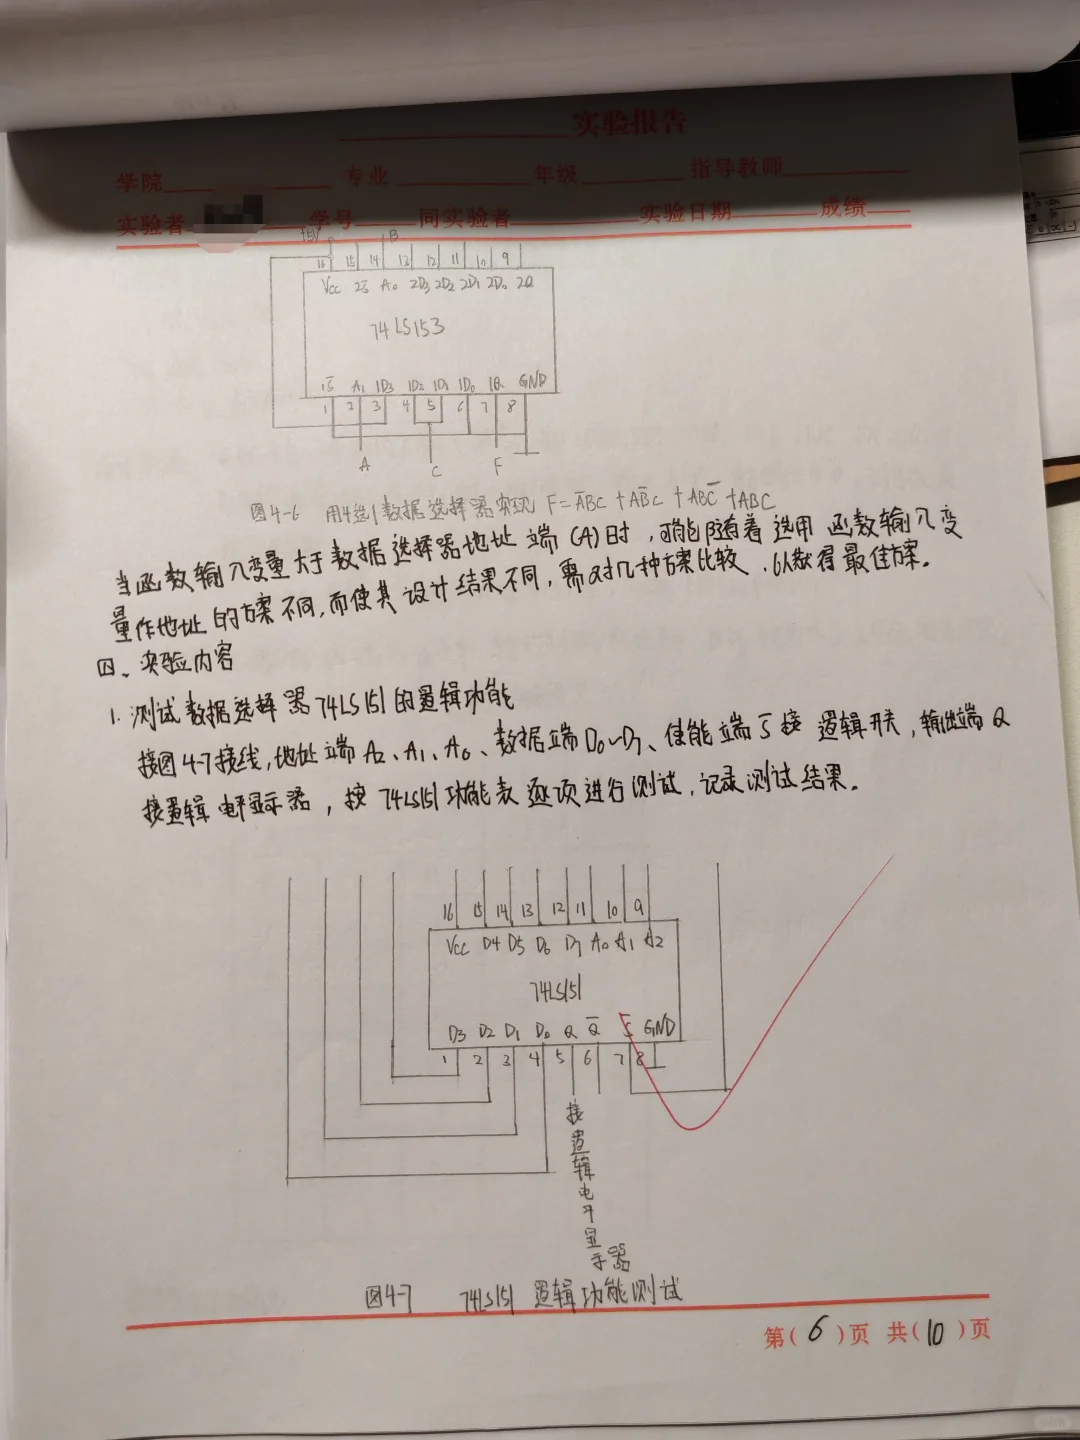 实验报告
学院 专业 年级 指导教师
实验者 学号 同实验者 实验日期 成绩
+5V B
16 15 14 13 12 11 10 9
Vcc 2S̅ A₀ 2D₃ 2D₂ 2D₁ 2D₀ 2Q
74LS153
1S̅ A₁ 1D₃ 1D₂ 1D₁ 1D₀ 1Q GND
1 2 3 4 5 6 7 8
A C F
图4-6 用4选1数据选择器实现 F=A̅BC+AB̅C+ABC̅+ABC
当函数输入变量大于数据选择器地址端(A)时,可能随着选用函数输入变
量作地址的方案不同,而使其设计结果不同,需对几种方案比较,以获得最佳方案。
四、实验内容
1. 测试数据选择器74LS151的逻辑功能
接图4-7接线,地址端A₂、A₁、A₀、数据端D₀~D₇、使能端S̅接逻辑开关,输出端Q
接逻辑电平显示器,按74LS151功能表逐项进行测试,记录测试结果。
16 15 14 13 12 11 10 9
Vcc D4 D5 D6 D7 A₀ A₁ A2
74LS151
D3 D2 D₁ D₀ Q Q̅ S̅ GND
1 2 3 4 5 6 7 8
接逻辑电平显示器
图4-7 74LS151 逻辑功能测试
第(6)页 共(10)页